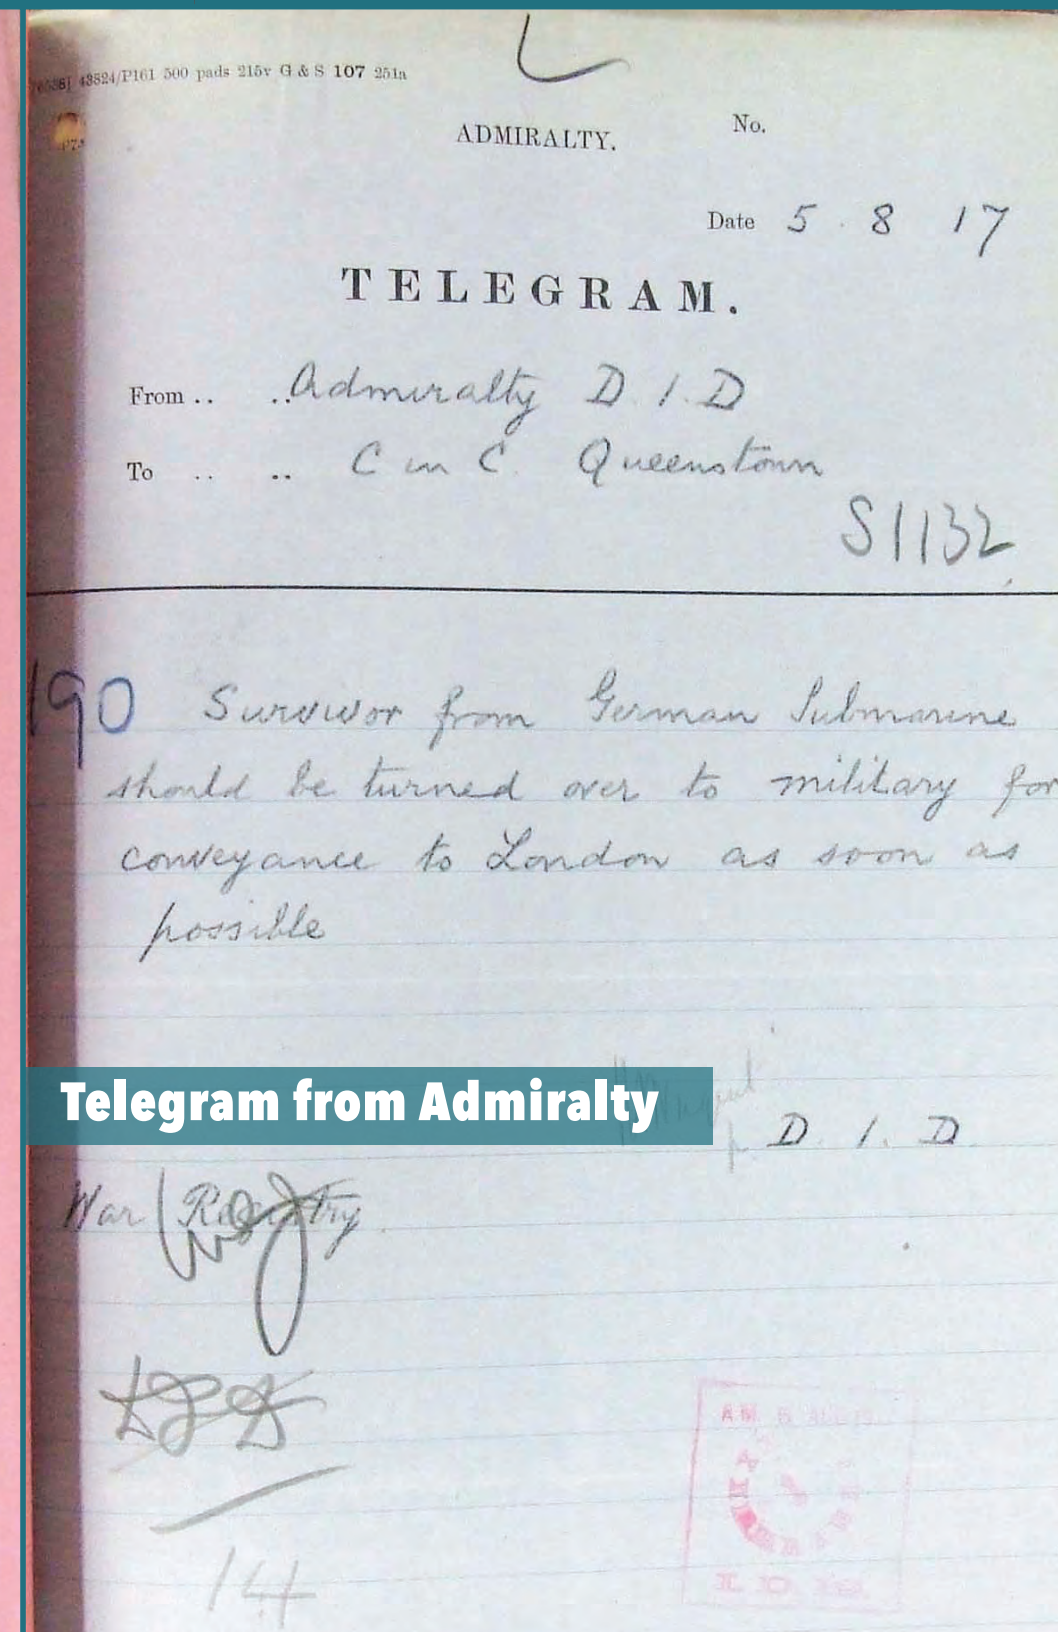 43824/P161 500 pads 215v G & S 107 251a
ADMIRALTY.
No.
Date 5 . 8 17
TELEGRAM.
From .. .. Admiralty D. I. D
To .. .. C in C. Queenstown
S1132
190 Survivor from German Submarine
should be turned over to military for
conveyance to London as soon as
possible
Telegram from Admiralty
D. I. D
War Registry.
14